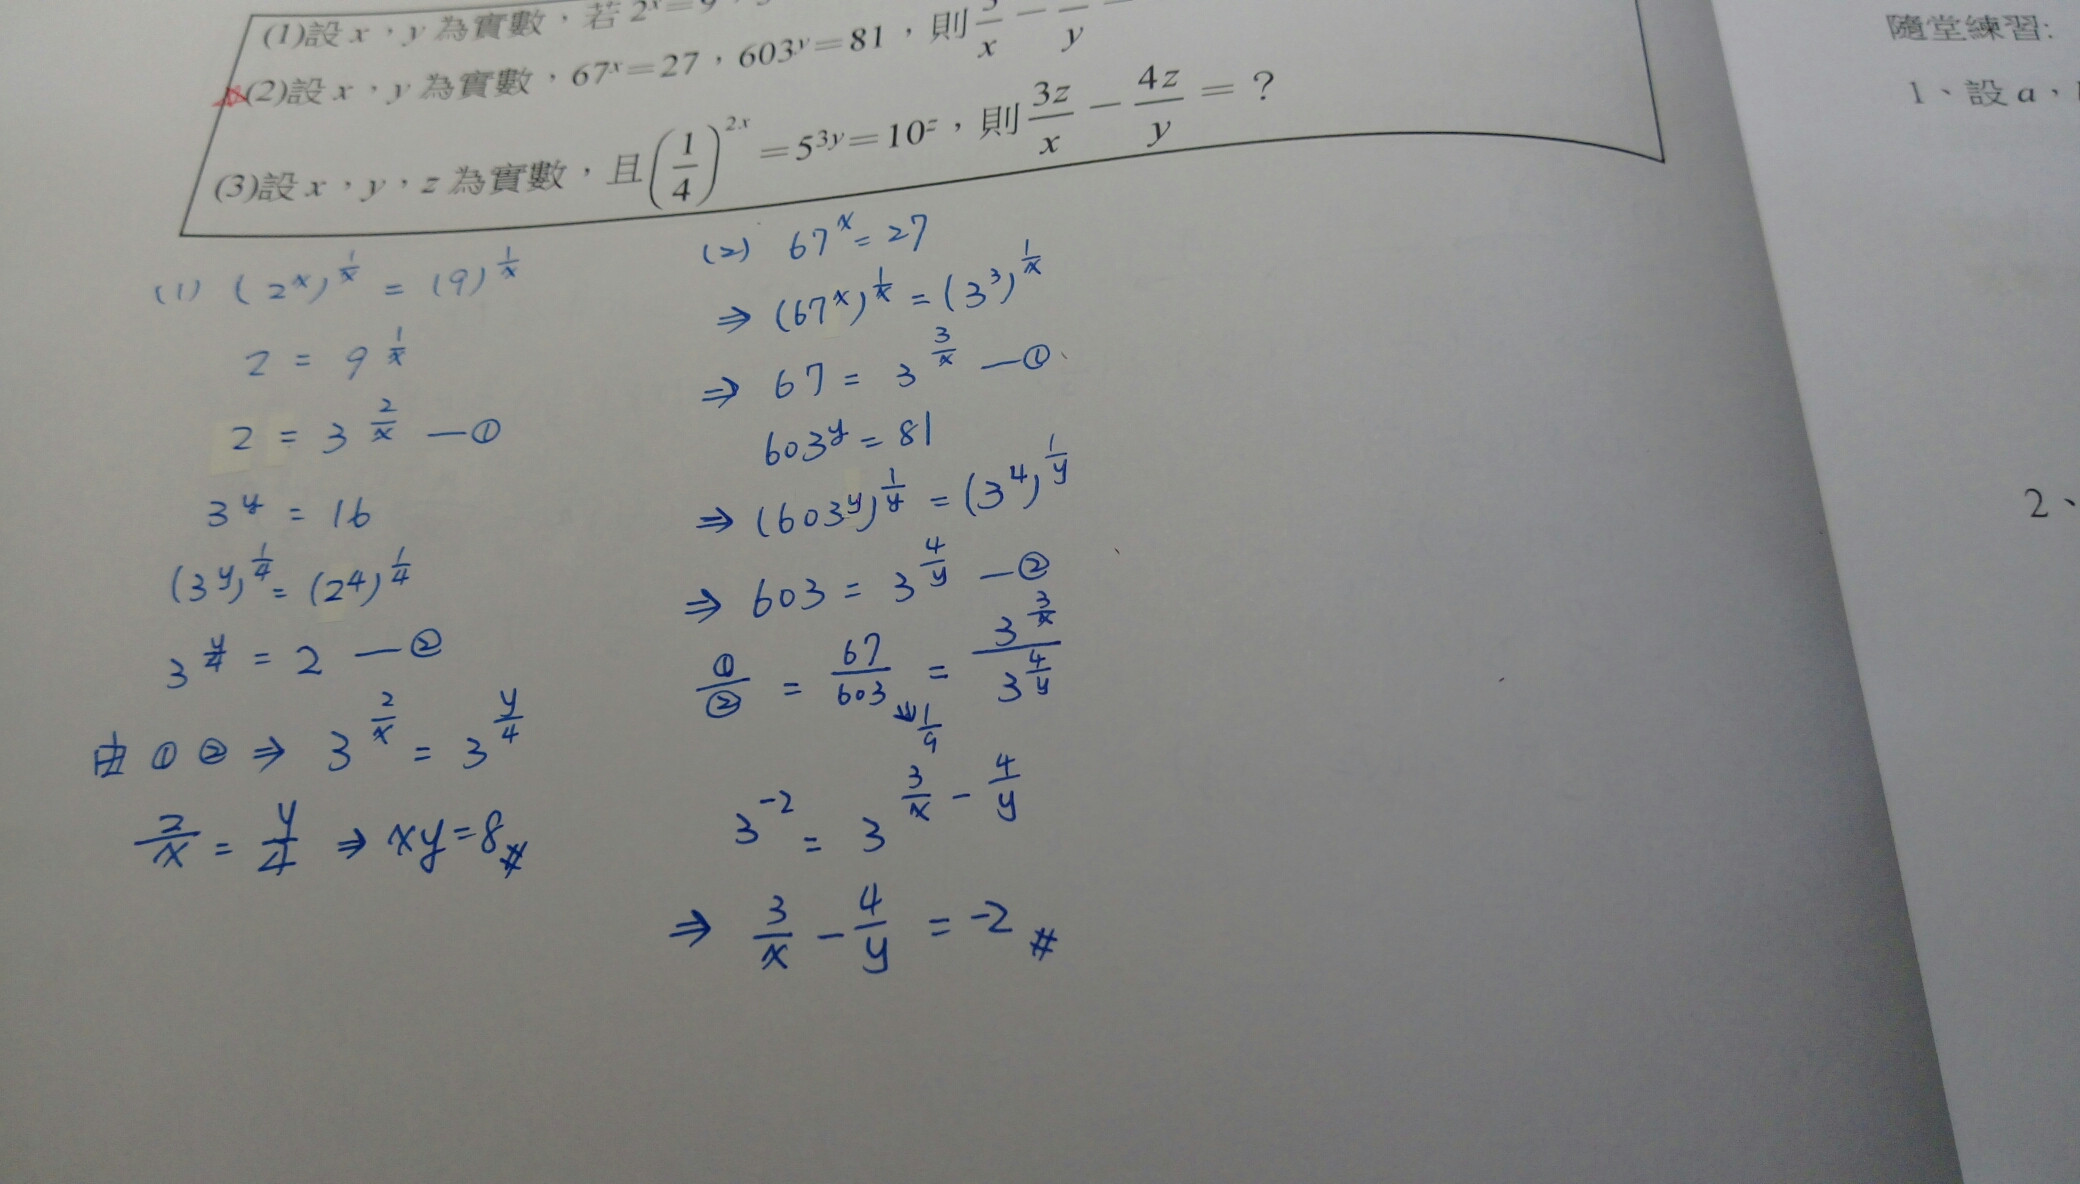 (1)設 x，y 為實數，若 2ˣ=9，
(2)設 x，y 為實數，67ˣ=27，603ʸ=81，則 3/x − /y
(3)設 x，y，z 為實數，且(1/4)²ˣ=5³ʸ=10ᶻ，則 3z/x − 4z/y =？
(1) (2ˣ)^(1/x) = (9)^(1/x)
2 = 9^(1/x)
2 = 3^(2/x) —①
3ʸ = 16
(3ʸ)^(1/4) = (2⁴)^(1/4)
3^(y/4) = 2 —②
由 ① ② ⇒ 3^(2/x) = 3^(y/4)
2/x = y/4 ⇒ xy=8#
(2) 67ˣ = 27
⇒ (67ˣ)^(1/x) = (3³)^(1/x)
⇒ 67 = 3^(3/x) —①
603ʸ = 81
⇒ (603ʸ)^(1/y) = (3⁴)^(1/y)
⇒ 603 = 3^(4/y) —②
①/② = 67/603 = 3^(3/x)/3^(4/y)
↘ 1/9
3⁻² = 3^(3/x − 4/y)
⇒ 3/x − 4/y = -2 #
隨堂練習:
1、設 a，
2、